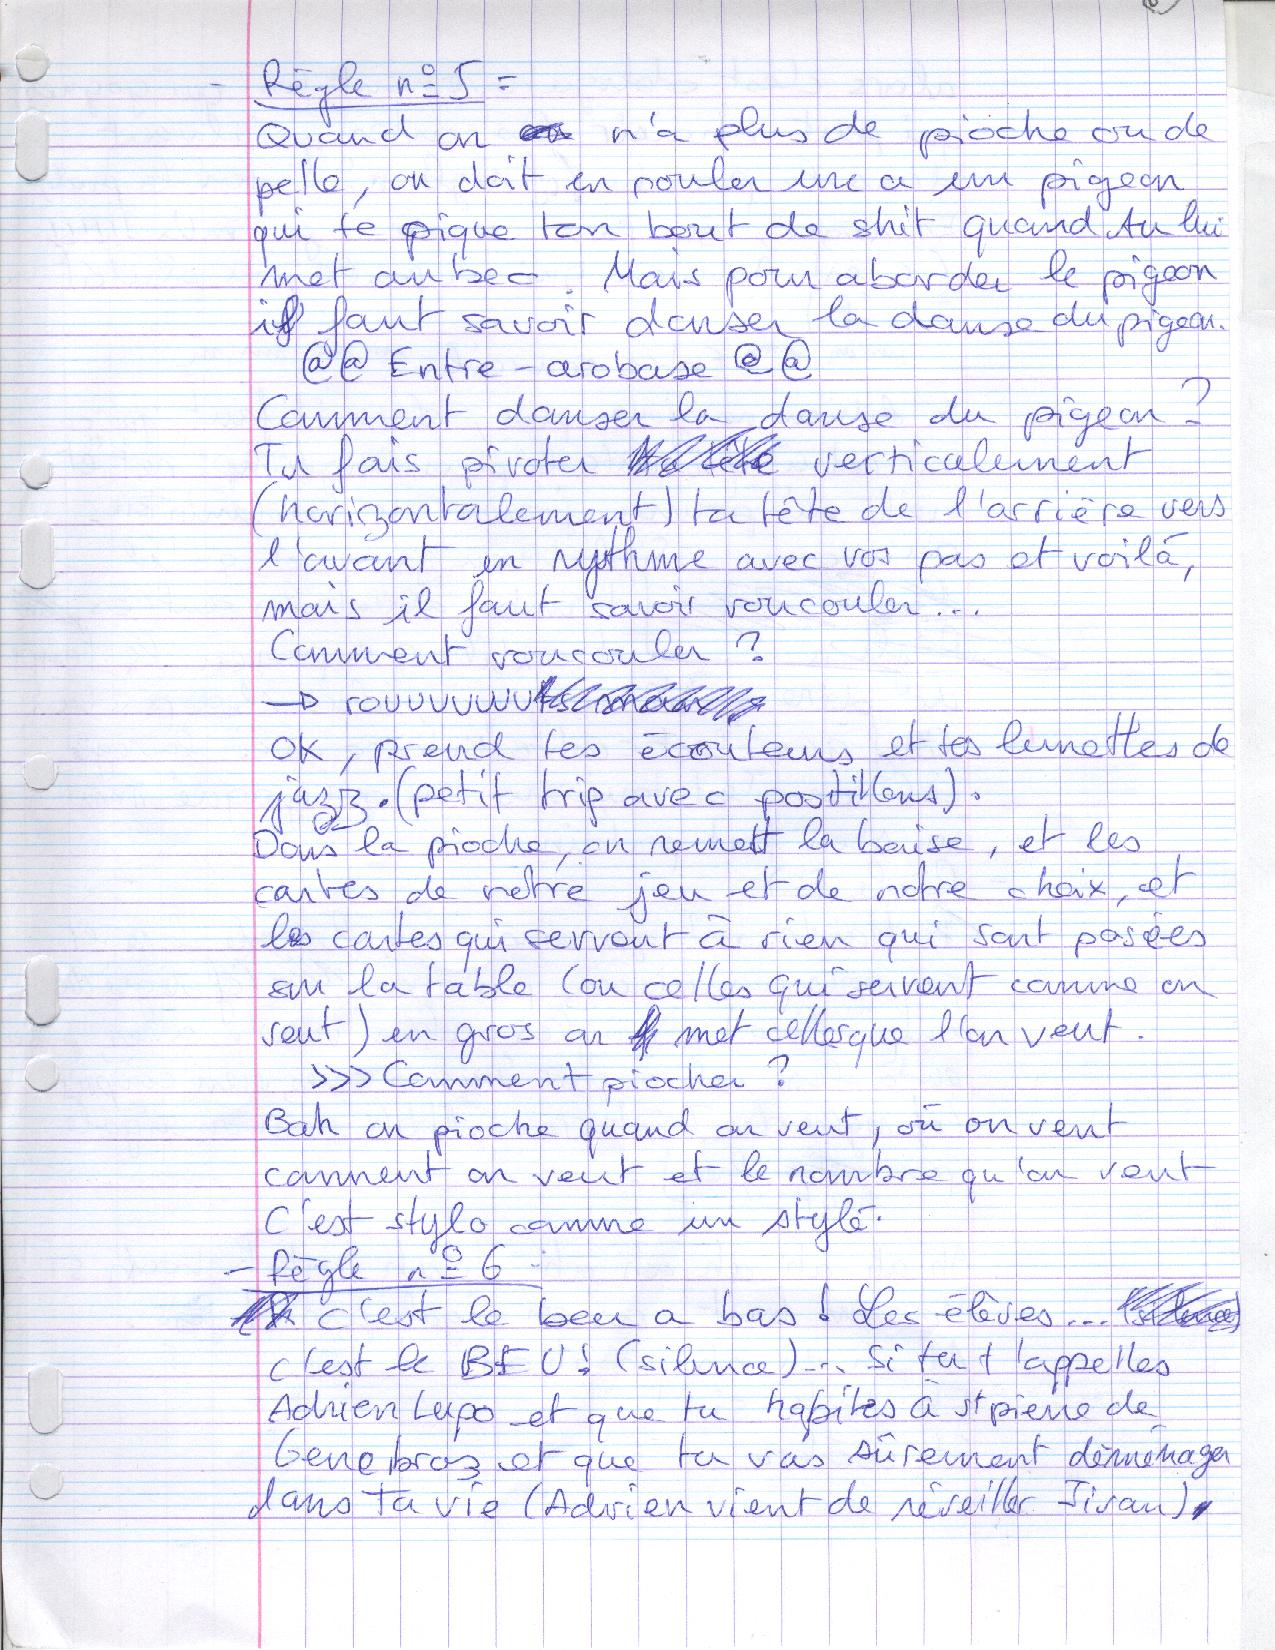 - Règle n° 5 =
Quand on n'a plus de pioche ou de
pelle, on doit en rouler une a un pigeon
qui te pique ton bout de shit quand tu lui
met au bec. Mais pour aborder le pigeon
il faut savoir danser la danse du pigeon.
@@ Entre-arobase @@
Comment danser la danse du pigeon ?
Tu fais pivoter verticalement
(horizontalement) ta tête de l'arrière vers
l'avant en rythme avec vos pas et voilà,
mais il faut savoir roucouler...
Comment roucouler ?
→ rouuuuuuu
OK, prend tes écouteurs et tes lunettes de
jazz. (petit trip avec postillons).
Dans la pioche, on remet la baise, et les
cartes de notre jeu et de notre choix, et
les cartes qui servent à rien qui sont posées
sur la table (ou celles qui servent comme on
veut) en gros on met celles que l'on veut.
>>> Comment piocher ?
Bah on pioche quand on veut, où on veut
comment on veut et le nombre qu'on veut
C'est stylo comme un stylé.
- Règle n° 6
c'est le beu a bas ! Les élèves...
c'est le BEU! (silence)... Si tu t'appelles
Adrien Lupo et que tu habites à st pierre de
Genebroz et que tu vas sûrement déménager
dans ta vie (Adrien vient de réveiller Jivan).